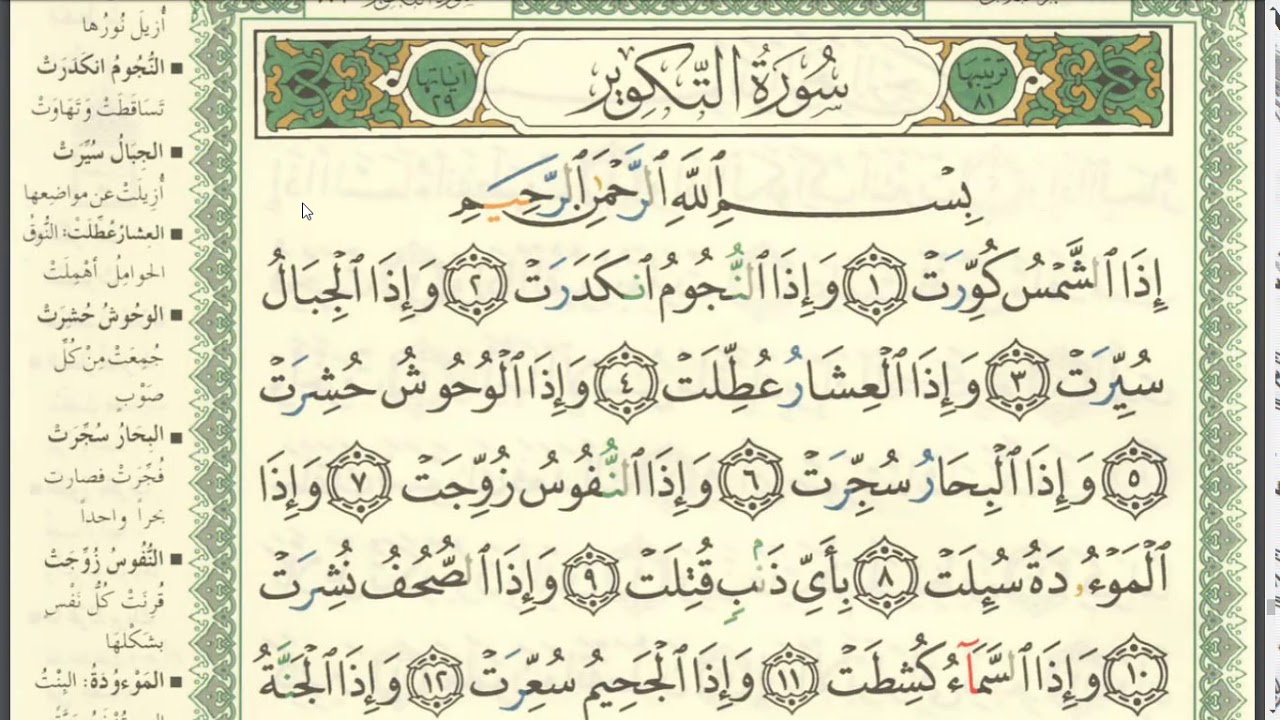 ترتيبها ٨١
سُورَةُ التَّكْوِير
آياتها ٢٩
بِسْمِ ٱللَّهِ ٱلرَّحْمَٰنِ ٱلرَّحِيمِ
إِذَا ٱلشَّمْسُ كُوِّرَتْ ١ وَإِذَا ٱلنُّجُومُ ٱنكَدَرَتْ ٢ وَإِذَا ٱلْجِبَالُ
سُيِّرَتْ ٣ وَإِذَا ٱلْعِشَارُ عُطِّلَتْ ٤ وَإِذَا ٱلْوُحُوشُ حُشِرَتْ
٥ وَإِذَا ٱلْبِحَارُ سُجِّرَتْ ٦ وَإِذَا ٱلنُّفُوسُ زُوِّجَتْ ٧ وَإِذَا
ٱلْمَوْءُۥدَةُ سُئِلَتْ ٨ بِأَىِّ ذَنۢبٍ قُتِلَتْ ٩ وَإِذَا ٱلصُّحُفُ نُشِرَتْ
١٠ وَإِذَا ٱلسَّمَآءُ كُشِطَتْ ١١ وَإِذَا ٱلْجَحِيمُ سُعِّرَتْ ١٢ وَإِذَا ٱلْجَنَّةُ
أُزِيلَ نُورُها
■ النُّجُومُ انكَدَرَتْ
تَسَاقَطَتْ وَتَهَاوَتْ
■ الجِبَالُ سُيِّرَتْ
أُزِيلَتْ عن مواضِعها
■ العِشارُ عُطِّلَتْ: النُّوقُ
الحوامِلُ أُهْمِلَتْ
■ الوُحُوشُ حُشِرَتْ
جُمِعَتْ مِنْ كُلِّ
صَوْبٍ
■ البِحَارُ سُجِّرَتْ
فُجِّرَتْ فصارت
بحراً واحداً
■ النُّفُوسُ زُوِّجَتْ
قُرِنَتْ كُلُّ نَفْسٍ
بشَكْلِهَا
■ المَوْءُودَةُ: البِنْتُ